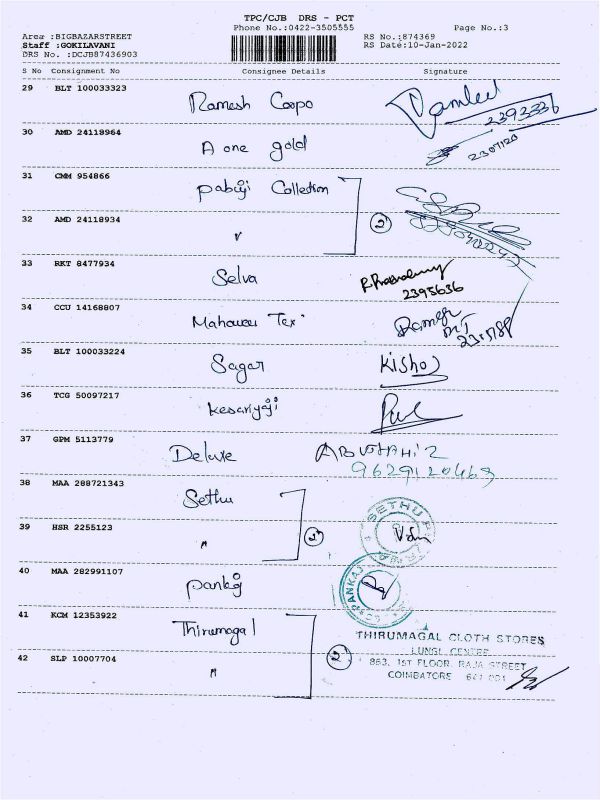 TPC/CJB DRS - PCT
Phone No.:0422-3505555 Page No.:3
Area :BIGBAZARSTREET RS No.:874369
Staff :GOKILAVANI RS Date:10-Jan-2022
DRS No. :DCJB87436903
S No Consignment No Consignee Details Signature
29 BLT 100033323 Ramesh Coopo
2393336
30 AMD 24118964 A one gold
31 CMM 954866 Pabuji Collection
2
32 AMD 24118934 "
33 RKT 8477934 Selva
2395636
34 CCU 14168807 Tex
35 BLT 100033224 Sagar Kishor
36 TCG 50097217 Kesariyaji
37 GPM 5113779 Deluxe
9629120469
38 MAA 288721343 Sethu
SETHU
39 HSR 2255123 " 2
40 MAA 282991107 Pankaj
PANKAJ
41 KCM 12353922 Thirumagal
THIRUMAGAL CLOTH STORES
LUNGI CENTRE
2
863, 1ST FLOOR, RAJA STREET
42 SLP 10007704 "
COIMBATORE 641 001